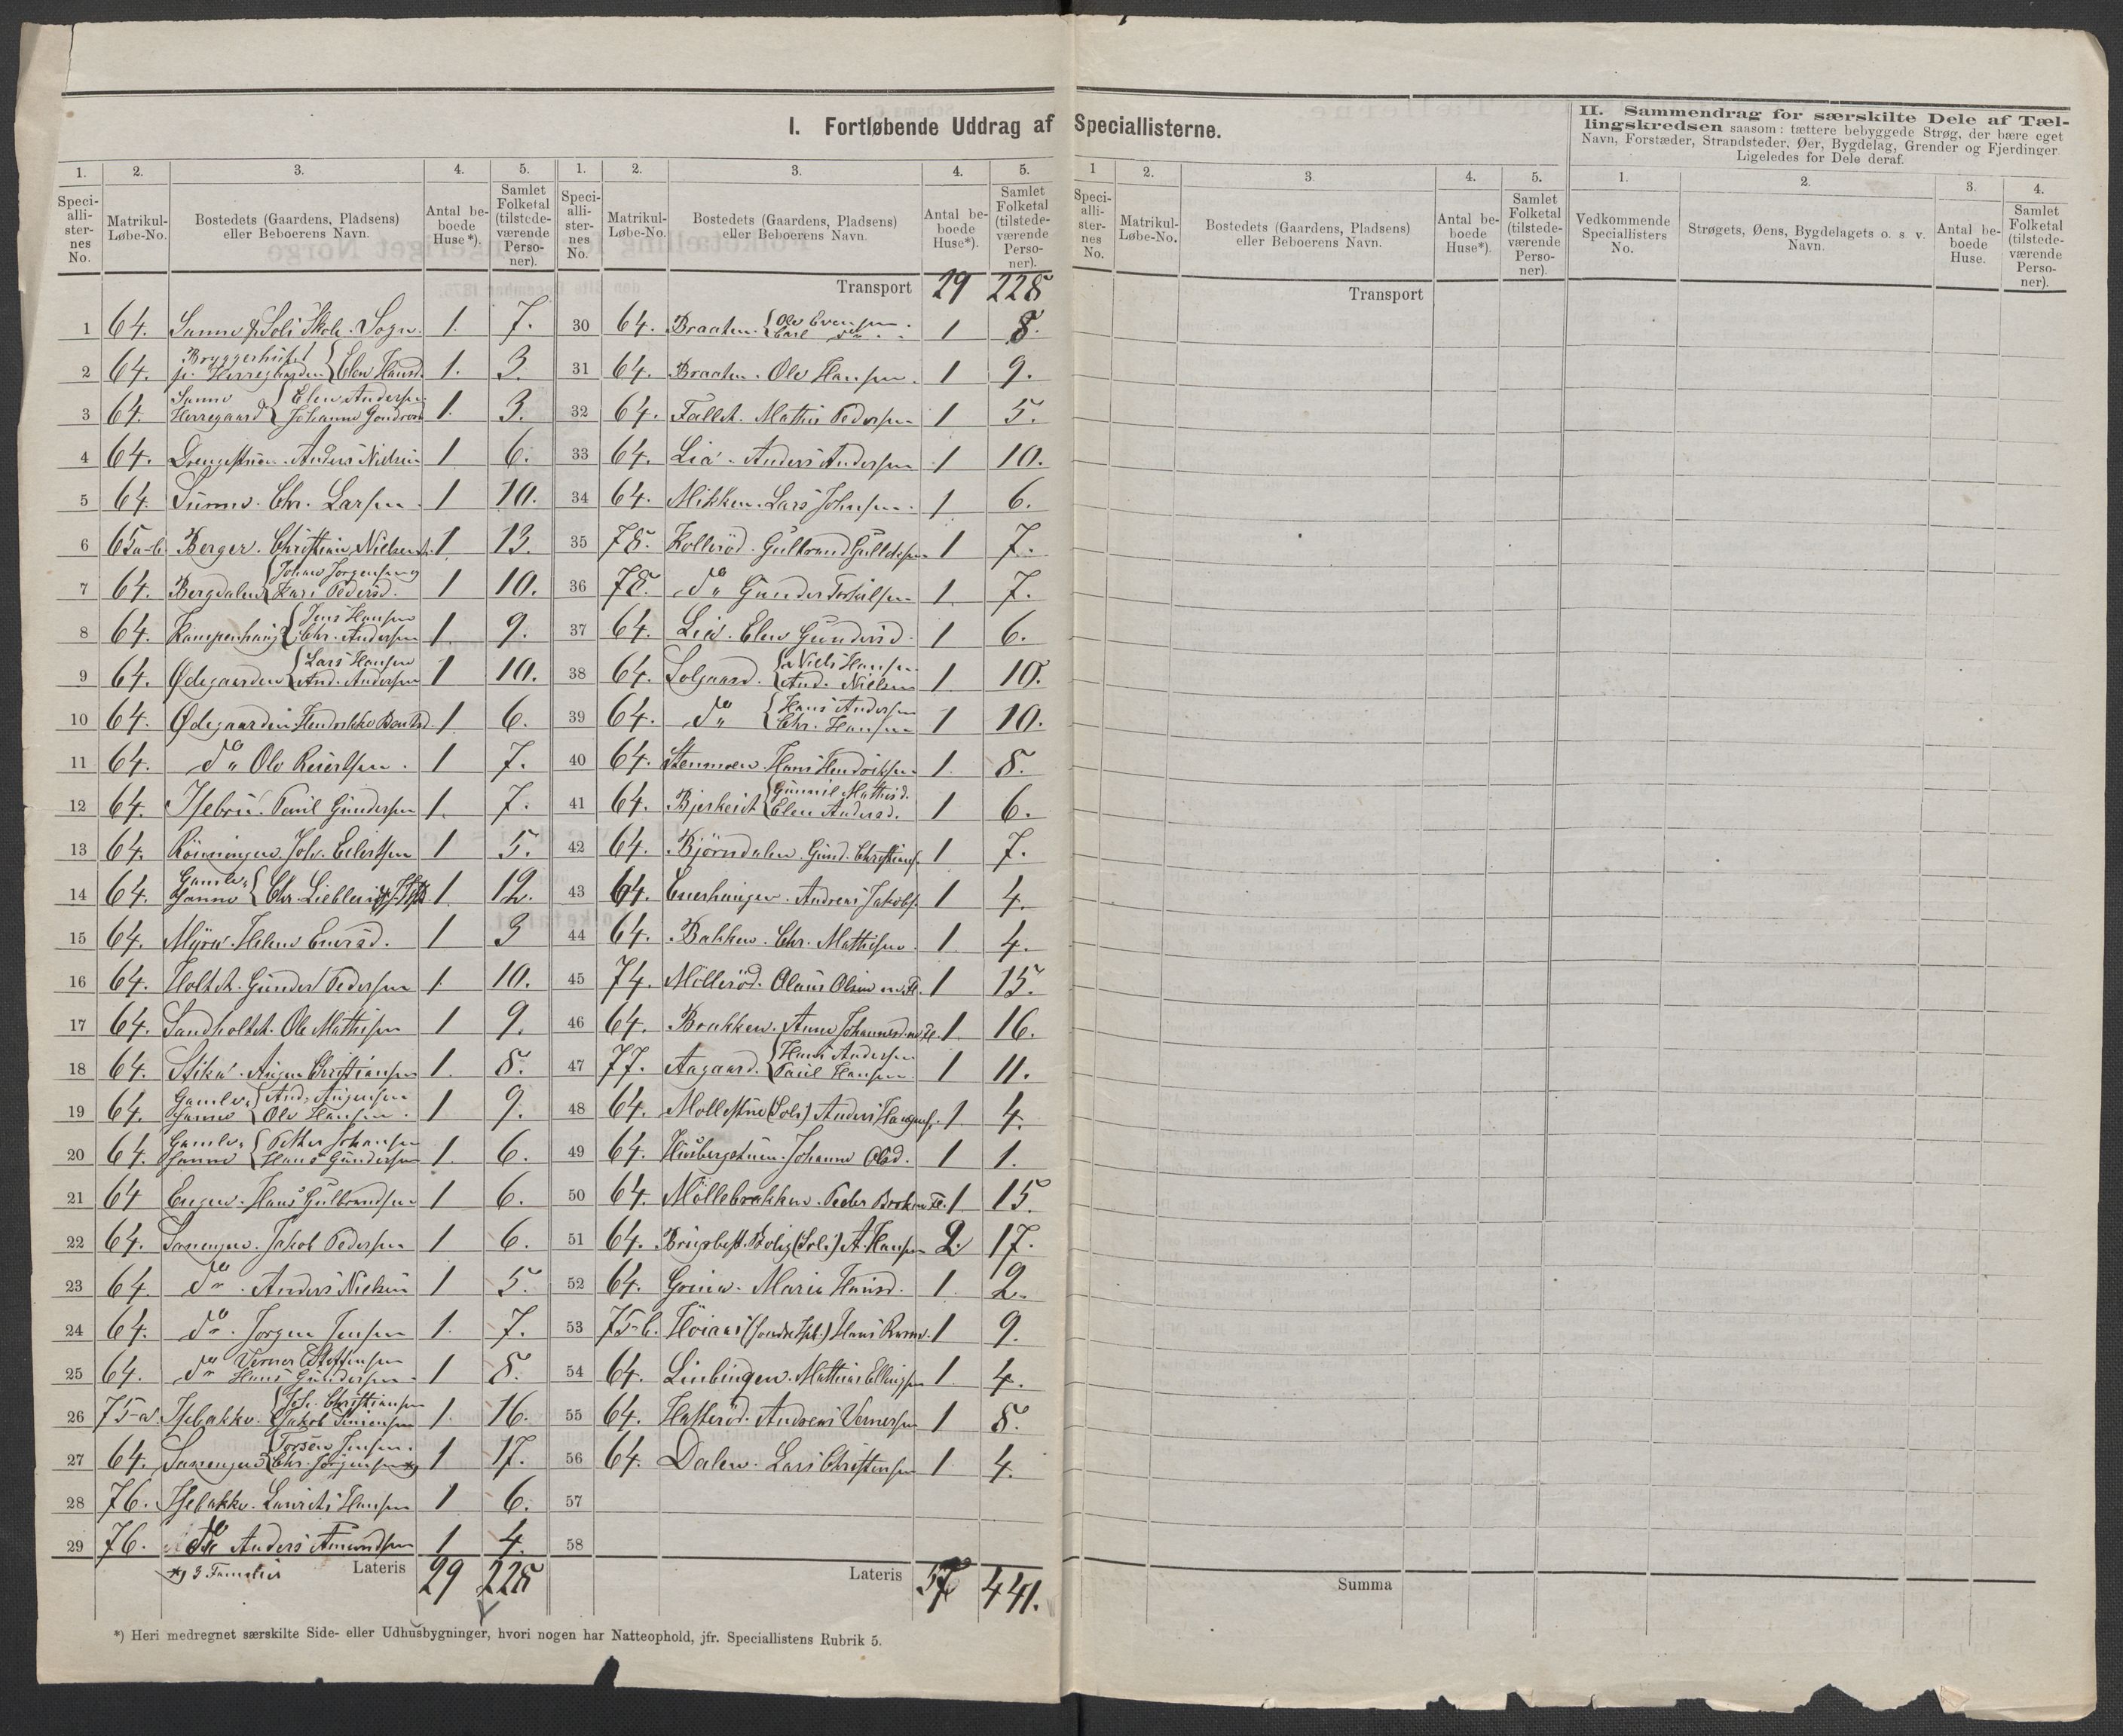 I. Fortløbende Uddrag af Speciallisterne.
II. Sammendrag for særskilte Dele af Tæl-
lingskredsen saasom: tættere bebyggede Strøg, der bære eget
Navn, Forstæder, Strandsteder, Øer, Bygdelag, Grender og Fjerdinger
Ligeledes for Dele deraf.
1. 2. 3. 4. 5. 1. 2. 3. 4. 5.
Speci-alli-ster-nes No. Matrikul-Løbe-No. Bostedets (Gaardens, Pladsens) eller Beboerens Navn. Antal be-boede Huse*). Samlet Folketal (tilstede-værende Perso-ner).
Speci-alli-ster-nes No. Matrikul-Løbe-No. Bostedets (Gaardens, Pladsens) eller Beboerens Navn. Antal be-boede Huse*). Samlet Folketal (tilstede-værende Perso-ner).
1 64. Sanne & Soli Skole. Sogn. 1. 7.
2 64. Bryggerhuset Herregaarden Elen Hansd. 1. 3.
3 64. Sanne Herregaard Elen Andersen Johanne 1. 3.
4 64. Drengestuen. Anders Nielsen 1 6.
5 64. Sanne. Chr. Larsen 1 10.
6 65a-b Berger. Christian Nielsen 1. 13.
7 64. Bergdalen Johan Jorgensen og Kari Pedersd. 1 10.
8 64. Kampenhaug Jens Hansen Chr. Andersen 1 9.
9 64. Ødegaarden Lars Hansen And. Andersen 1 10.
10 64. Ødegaarden Hendrikke 1 6.
11 64. do Ole Reiertsen. 1 7.
12 64. Paul Gundersen 1. 7.
13 64. Rönningen. Joh. Eilertsen 1 5.
14 64. Gamle Sanne Chr. 1. 12.
15 64. Myra. Helene 1 3
16 64. Holtet. Gunder Pedersen 1. 10.
17 64. Sandholtet. Ole Mathisen 1 9.
18 64. Stika. Christiansen 1. 8.
19 64. Gamle Sanne And. Ole Hansen. 1 9.
20 64. Gamle Sanne Petter Johansen Hans Gundersen 1. 6.
21 64 Engen. Hans Gulbrandsen 1 6.
22 64. Jakob Pedersen 1 6.
23 64 do. Anders Nielsen 1 5.
24 64. do. Jorgen Jensen 1. 7.
25 64. do Verner Hans Gundersen 1 8.
26 75-a. Isebakke. Joh. Christiansen Jakob 1. 16.
27 64. Jensen. Chr. Jorgensen *) 1 17.
28 76. Isebakke. Laurits Hansen 1 6.
29 76. do Anders Amundsen 1 4.
*) 3 Familier Lateris 29 228
Transport 29 228
30 64. Braaten. Ole Evensen. Carl do 1 8.
31 64. Braaten. Ole Hansen. 1 9.
32 64. Fallet. Mathis Pedersen 1 5.
33 64. Lia. Anders Andersen 1 10.
34 64. Mikken. Lars Johnsen. 1 6.
35 78. Kolleröd. Gulbrand 1 7.
36 78. do Gunder 1 7.
37 64. Lia. Elen Gundersd. 1 6.
38 64. Solgaard. Niels Hansen And. Nielsen 1. 10.
39 64. do Hans Andersen Chr. Hansen 1 10.
40 64. Hans Hendriksen 1. 8.
41 64. Gunnil Mathisd. Elen Andersd. 1 6.
42 64. Björndalen. Gund. Christians. 1 7.
43 64. Andreas Jakobs. 1 4.
44 64. Bakken. Chr. Mathisen. 1. 4.
45 74. Mölleröd. Olaus Olsen m. Fl. 1 15.
46 64. Brakken. Anne Johannesd. m. Fl. 1. 16.
47 77. Aagaard. Hans Andersen Paul Hansen. 1 11.
48 64. (Soli) Anders 1. 4.
49 64. Johanne Olsd. 1 1.
50 64. Möllebrakken. Peder m Fl. 1 15.
51 64. Brugsbest. Bolig (Soli) A. Hansen 2. 17.
52 64. Grina. Maria Hansd. 1. 2.
53 75-b. Höiaas Hans 1 9.
54 64. Mathias Ellingsen 1. 4.
55 64. Hatteröd. Andreas Vernersen 1 8.
56 64. Dalen. Lars Christensen 1 4.
57
58
Lateris 57 441.
*) Heri medregnet særskilte Side- eller Udhusbygninger, hvori nogen har Natteophold, jfr. Speciallistens Rubrik 5.
1 2. 3. 4. 5. 1. 2. 3. 4.
Speci-alli-ster-nes No. Matrikul-Løbe-No. Bostedets (Gaardens, Pladsens) eller Beboerens Navn. Antal be-boede Huse*). Samlet Folketal (tilstede-værende Perso-ner).
Vedkommende Speciallisters No. Strøgets, Øens, Bygdelagets o. s v. Navn. Antal be-boede Huse. Samlet Folketal (tilstede-værende Perso-ner).
Transport
Summa